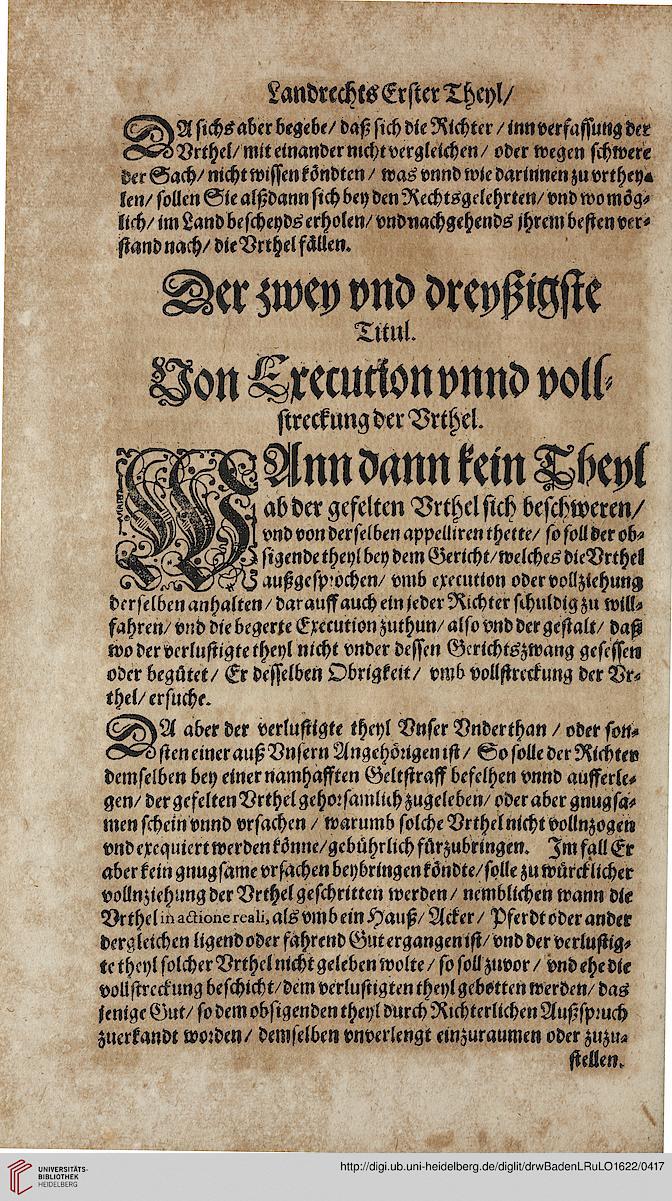 Landrechts Erster Theyl/
DA sichs aber begebe/ daß sich die Richter/ inn verfassung der
Vrthel/ mit einander nicht vergleichen/ oder wegen schwere
der Sach/ nicht wissen köndten/ was vnnd wie darinnen zu vrthey⸗
len/ sollen Sie alßdann sich bey den Rechtsgelehrten/ vnd wo mög⸗
lich/ im Land bescheyds erholen/ vnd nachgehends jhrem besten ver⸗
stand nach/ die Vrthel fällen.
Der zwey vnd dreyßigste
Titul.
Von Execution vnnd voll⸗
streckung der Vrthel.
WAnn dann kein Theyl
ab der gefelten Vrthel sich beschweren/
vnd von derselben appelliren thette/ so soll der ob⸗
sigende theyl bey dem Gericht/ welches die Vrthel
außgesprochen/ vmb execution oder vollziehung
derselben anhalten/ darauff auch ein jeder Richter schuldig zu will⸗
fahren/ vnd die begerte Execution zuthun/ also vnd der gestalt/ daß
wo der verlustigte theyl nicht vnder dessen Gerichtszwang gesessen
oder begütet/ Er desselben Obrigkeit/ vmb vollstreckung der Vr⸗
thel/ ersuche.
DA aber der verlustigte theyl Vnser Vnderthan/ oder son⸗
sten einer auß Vnsern Angehörigen ist/ So solle der Richter
demselben bey einer namhafften Geltstraff befelhen vnnd aufferle⸗
gen/ der gefelten Vrthel gehorsamlich zugeleben/ oder aber gnugsa⸗
men schein vnnd vrsachen/ warumb solche Vrthel nicht vollnzogen
vnd exequiert werden könne/ gebührlich fürzubringen. Im fall Er
aber kein gnugsame vrsachen beybringen köndte/ solle zu würcklicher
vollnziehung der Vrthel geschritten werden/ nemblichen wann die
Vrthel in actione reali, als vmb ein Hauß/ Acker/ Pferdt oder ander
dergleichen ligend oder fahrend Gut ergangen ist/ vnd der verlustig⸗
te theyl solcher Vrthel nicht geleben wolte/ so soll zuvor/ vnd ehe die
vollstreckung beschicht/ dem verlustigten theyl gebotten werden/ das
jenige Gut/ so dem obsigenden theyl durch Richterlichen Außspruch
zuerkandt worden/ demselben vnverlengt einzuraumen oder zuzu⸗
stellen.
UNIVERSITÄTS-
BIBLIOTHEK
HEIDELBERG
http://digi.ub.uni-heidelberg.de/diglit/drwBadenLRuLO1622/0417